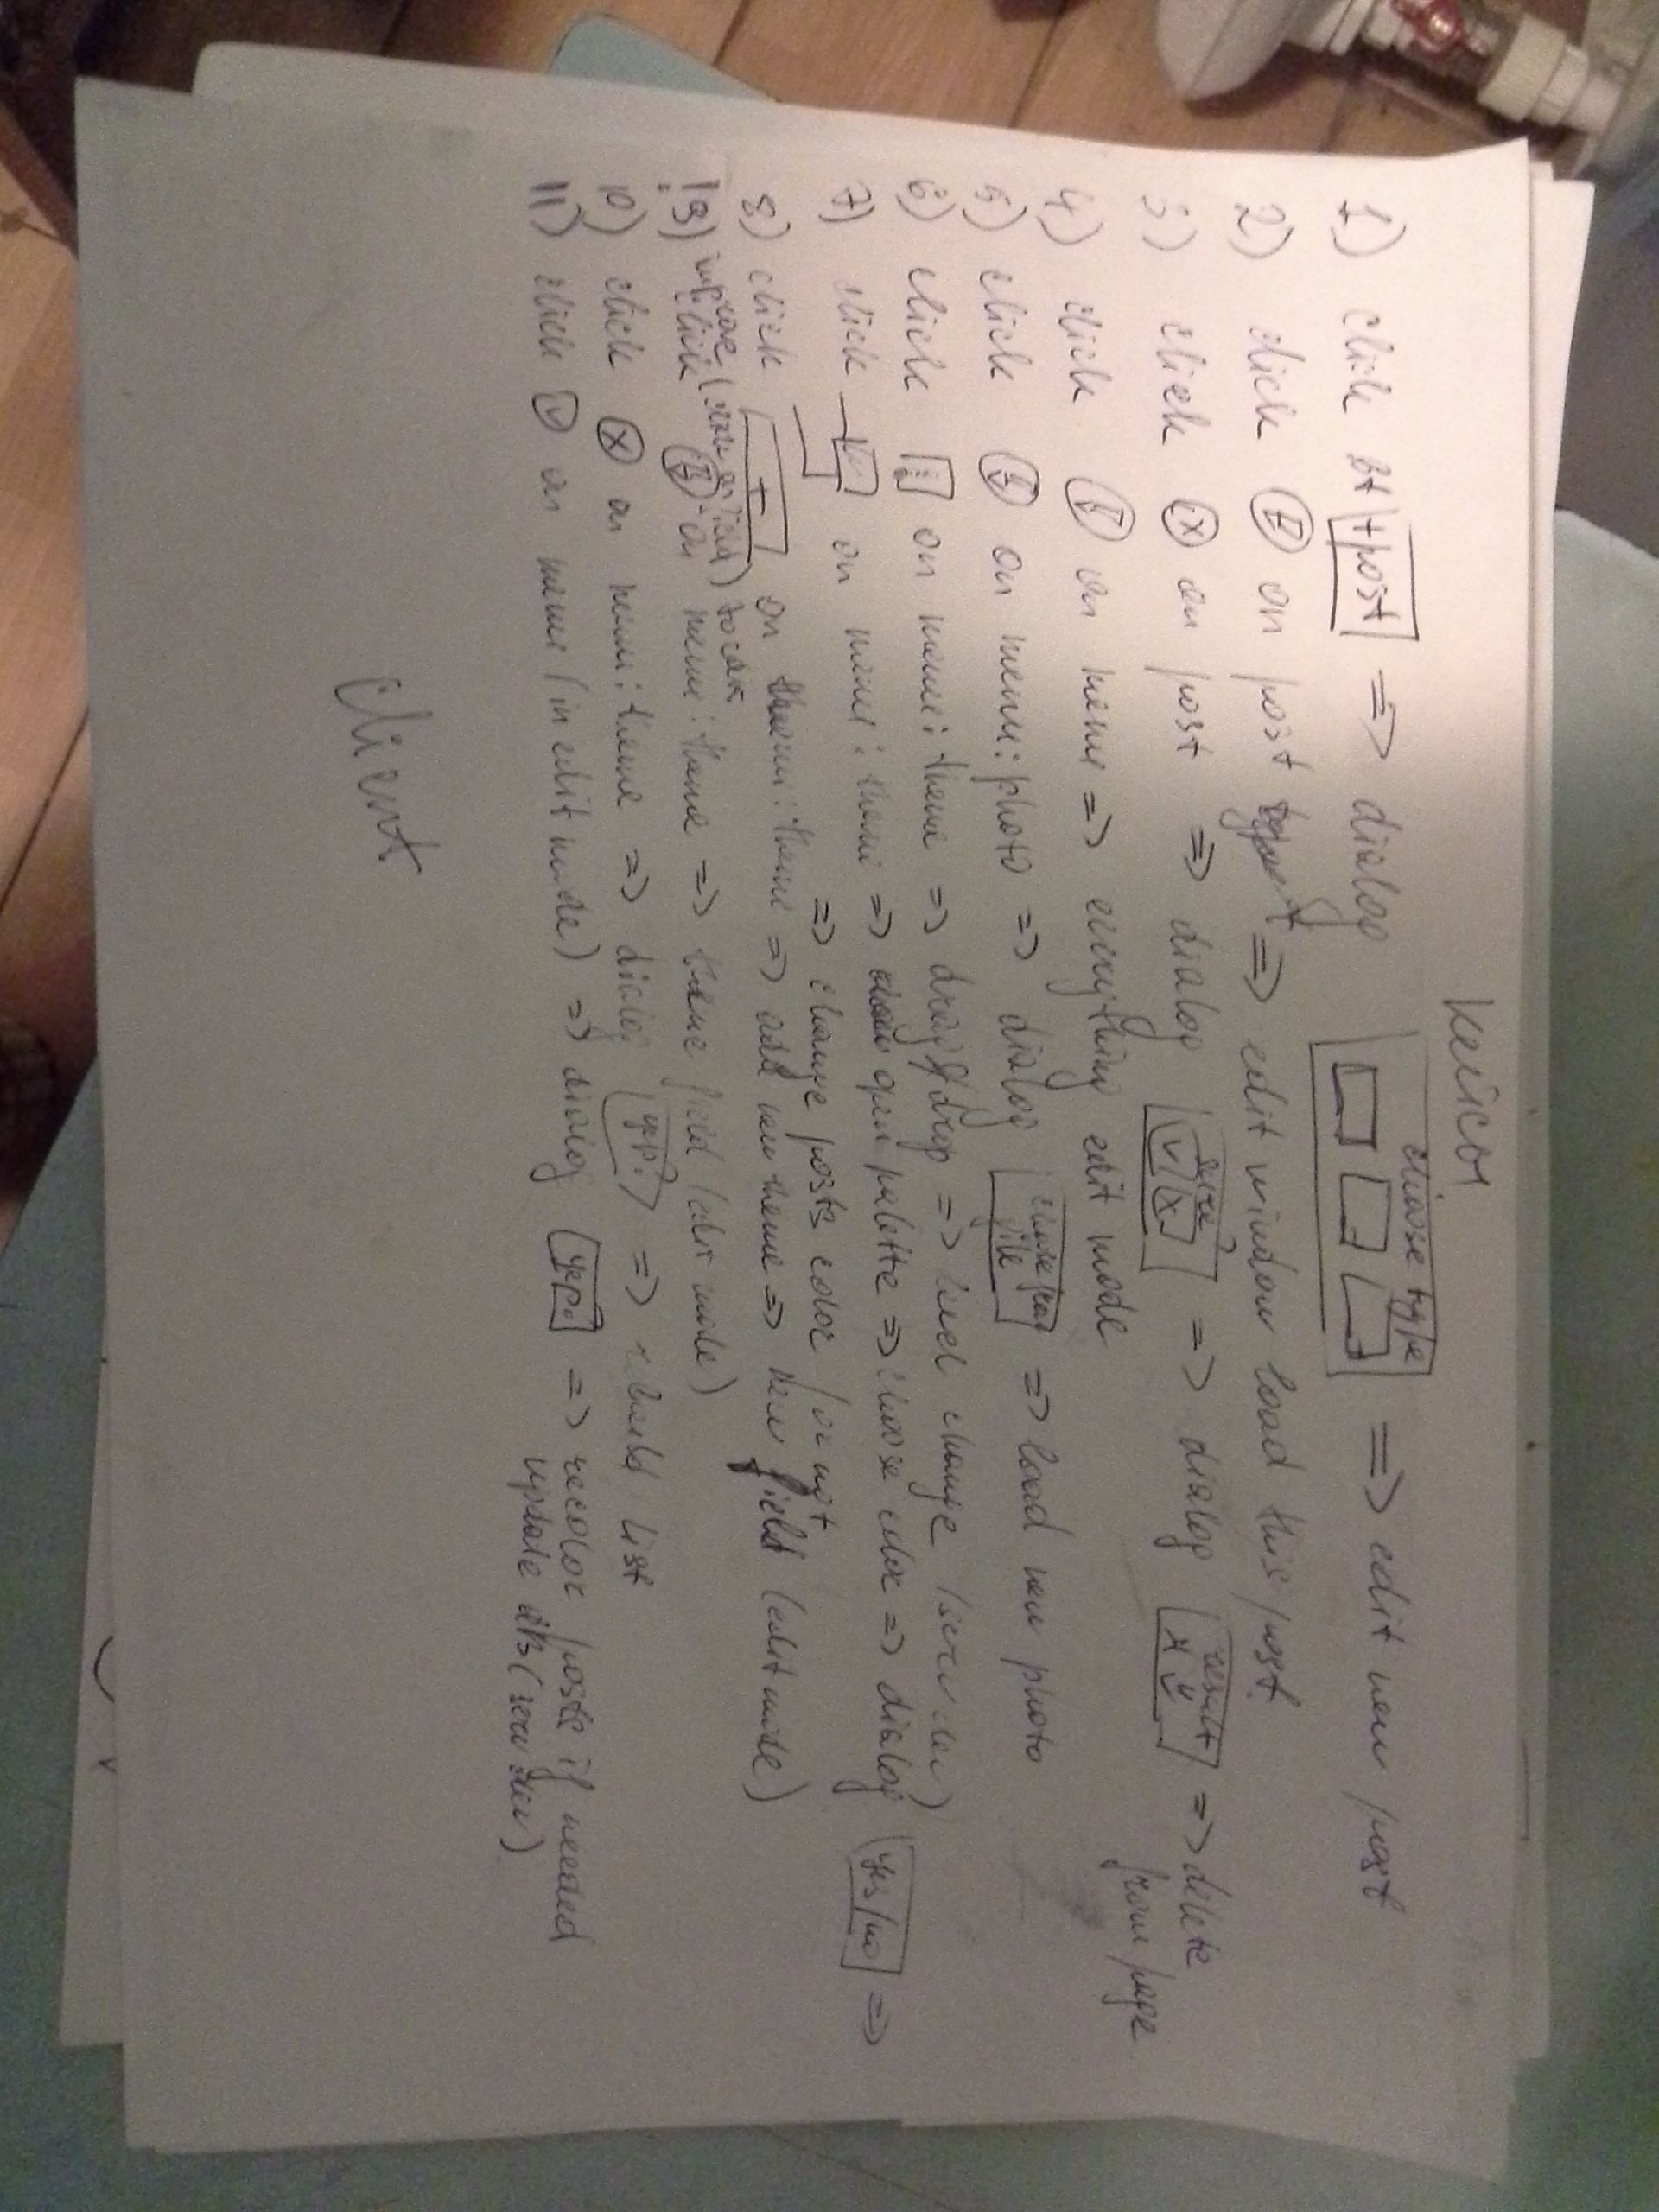 Кейсы
1) click bt +post => dialog choose type => edit new post
2) click E on post => edit window load this post.
3) click x on post => dialog sure? v x => dialog result x v => delete
from page
4) click on menu => everything edit mode
5) click on menu: photo => dialog file => load new photo
6) click on menu: theme => drag&drop => level change (serv dev)
7) click on menu: theme => open palette => choose color => dialog yes/no =>
=> change posts color / or not
8) click + on : theme => add new theme => new field (edit mode)
improve (click on field)
!9) click on menu: theme => theme field (edit mode)
10) click x on menu: theme => dialog yep? => rebuild list
11) click v on menu (in edit mode) => dialog yep? => recolor posts if needed
update DB (serv dev)
client